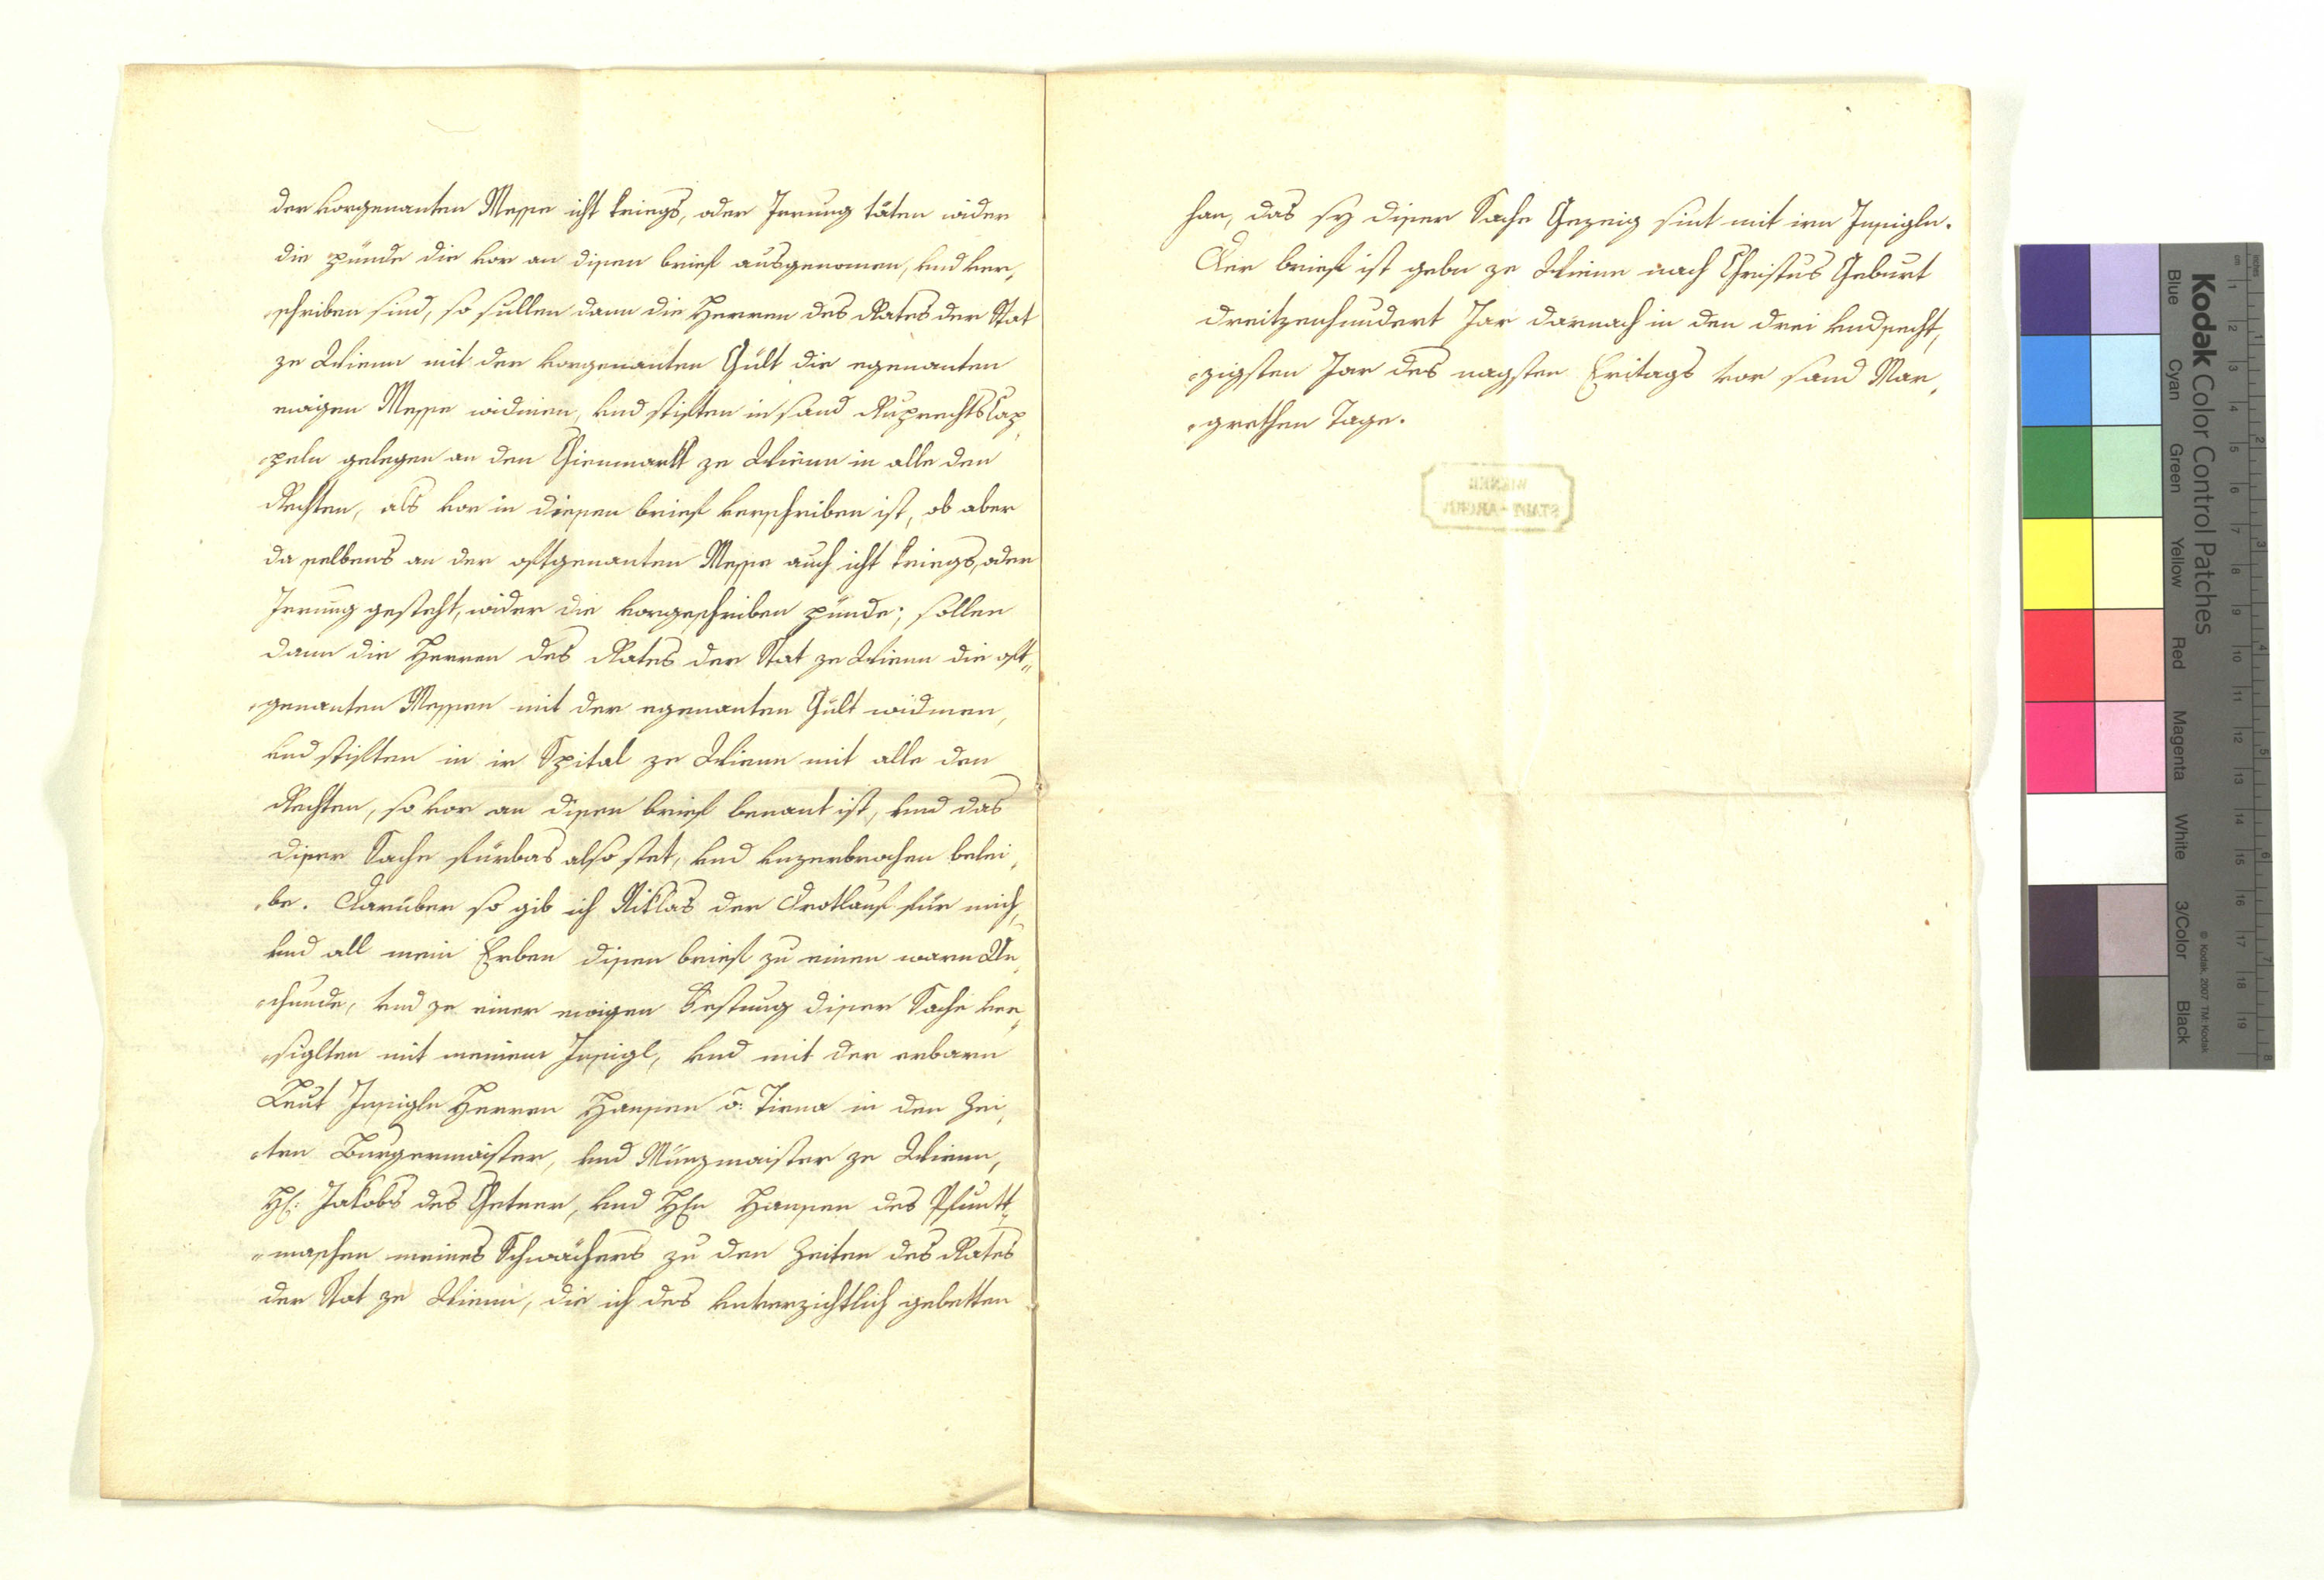 der vorgenanten Messe icht kriegs, oder Irrung täten wider
die pünde die vor an disen brief ausgenomen, vnd ver,
schriben sind, so sullen dann die Herren des Rates der Stat
ze Wienn mit der vorgenanten Gült die egenanten
ewigen Messe widmen, vnd stiften in sand Ruprechts Cap,
peln gelegen an den Gienmarkt ze Wienn in alle den
Rechten, als vor in diesen brief verschriben ist, ob aber
da selbens an der oftgenanten Messe auch icht kriegs, oder
Irrung gesteht, wider die vorgeschriben pünde; sollen
dann die Herren des Rates der Stat ze Wienn die oft„
„genanten Messen mit der egenanten Gült widmen,
vnd stiften in ir Spital ze Wienn mit alle den
Rechten, so vor an disen brief benant ist, vnd das
diser Sache fürbas also stet, vnd vnzerbrochen belei,
„be. Darüber so gib ich Niklas der Drotlauf für mich,
vnd all mein Erben disen brief zu einen warn Ur,
„chunde, vnd ze einer ewigen Vestung diser Sache ver,
„siglten mit meinem Insigl, vnd mit der erbarn
Leut Insigln Herren Hansen v: Tirna in den Zei,
„ten Burgermaister, vnd Münzmaister ze Wienn,
H: Jakobs des Chetner, vnd Hrn Hansen des Pfuntt„
„maschen meines Schwächers zu den Zeiten des Rates
der Stat ze Wienn, die ich des vnverzichtlich gebetten
han, das sy diser Sache Gezeig sint mit irn Insigln.
Der brief ist gebn ze Wienn nach Christus Geburt
dreitzenhundert Jar darnach in den drei vndsecht,
„zigsten Jar des nagsten Eritags vor sand Mar,
„grethen Tage.
WIENER
STADT-ARCHIV
Kodak Color Control Patches
Blue Cyan Green Yellow Red Magenta White 3/Color Black
© Kodak, 2007 TM: Kodak